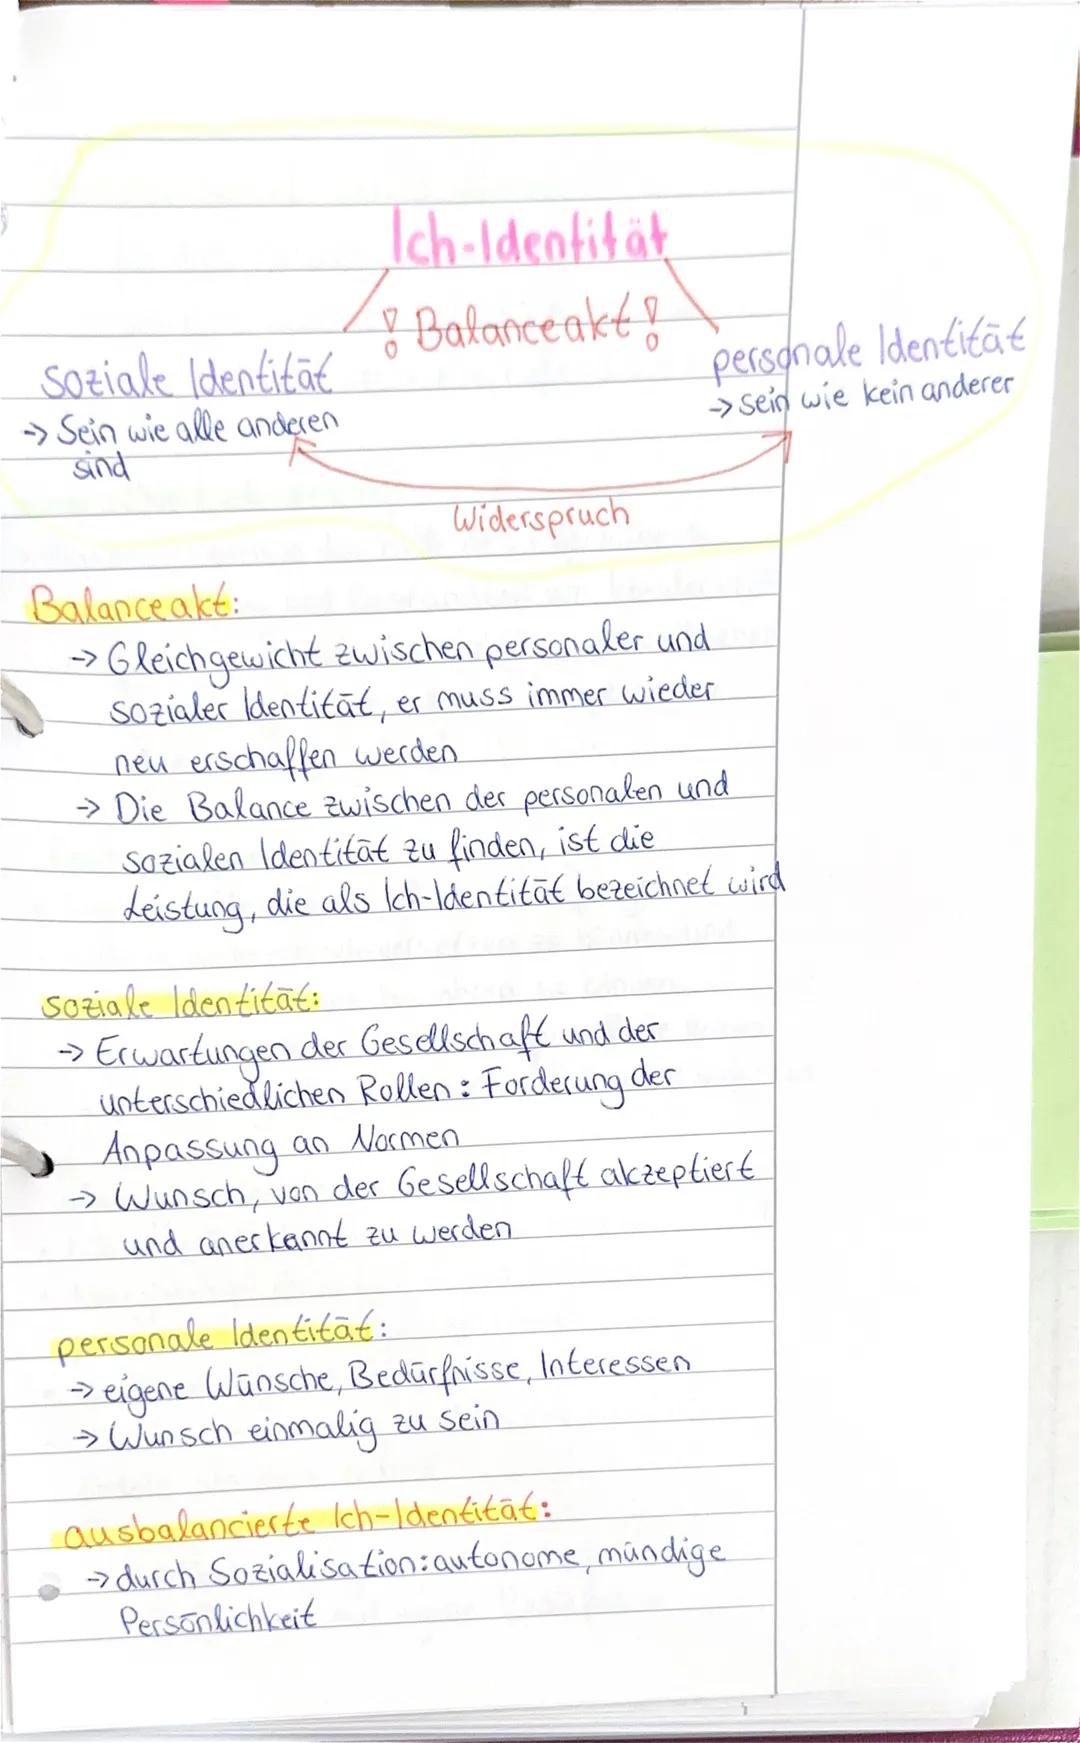 Ich-Identität
! Balanceakt!
soziale Identität
personale Identität
-> Sein wie alle anderen
sind
-> sein wie kein anderer
Widerspruch
Balanceakt:
-> Gleichgewicht zwischen personaler und
sozialer Identität, er muss immer wieder
neu erschaffen werden
-> Die Balance zwischen der personalen und
sozialen Identität zu finden, ist die
Leistung, die als Ich-Identität bezeichnet wird
soziale Identität:
-> Erwartungen der Gesellschaft und der
unterschiedlichen Rollen: Forderung der
Anpassung an Normen
-> Wunsch, von der Gesellschaft akzeptiert
und anerkannt zu werden
personale Identität:
-> eigene Wünsche, Bedürfnisse, Interessen
-> Wunsch einmalig zu sein
ausbalancierte Ich-Identität:
-> durch Sozialisation: autonome, mündige
Persönlichkeit